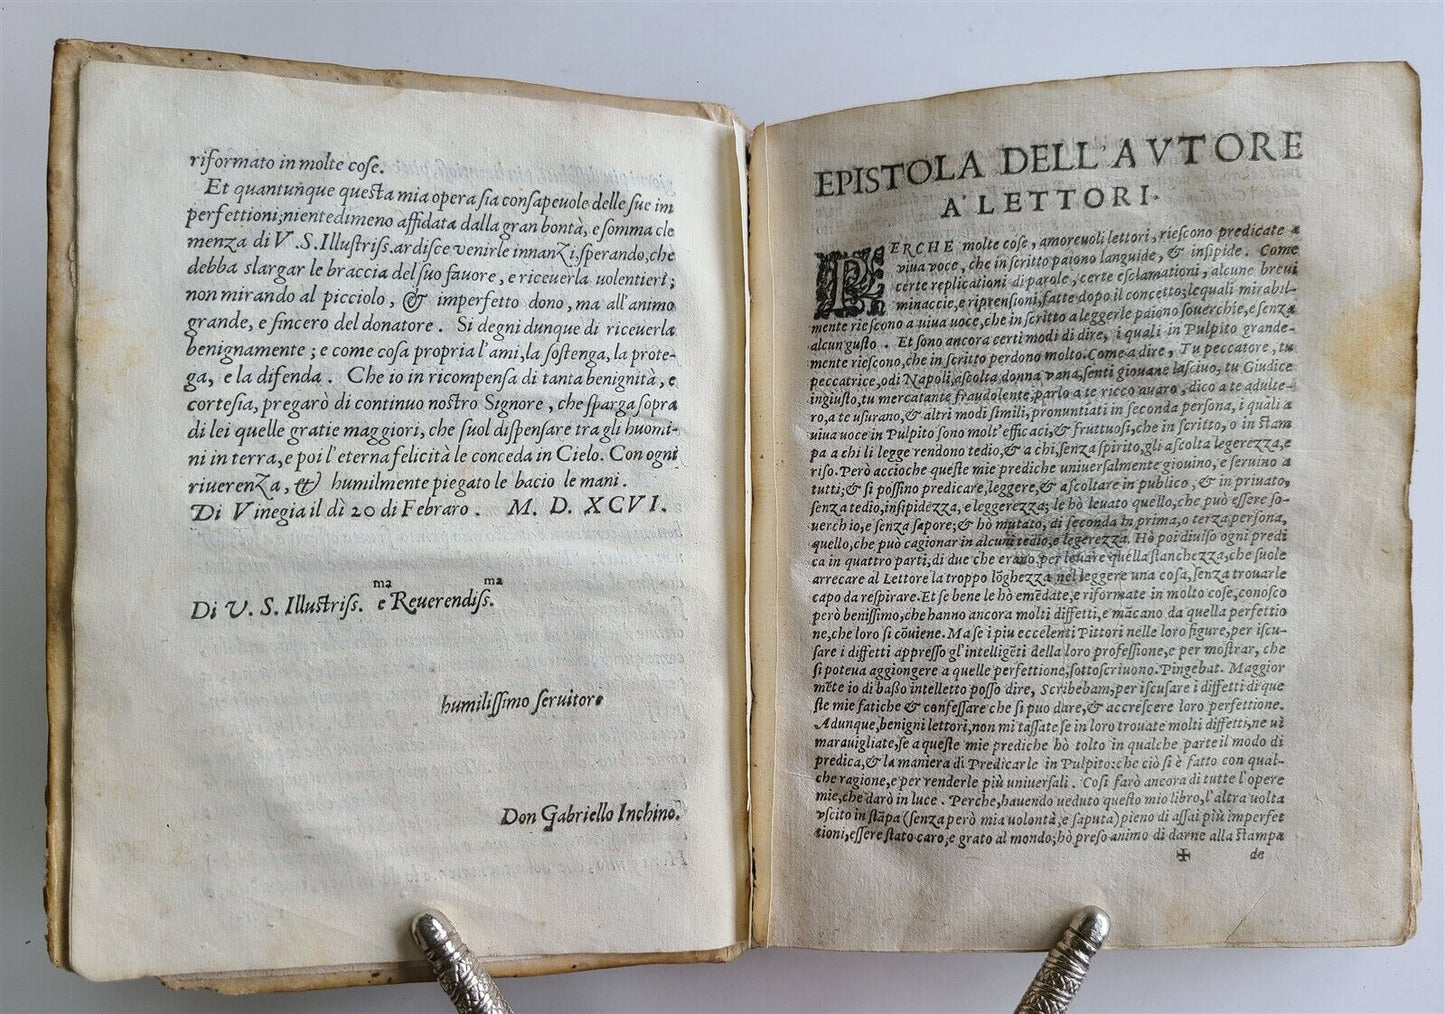 riformato in molte cose.
Et quantunque questa mia opera sia consapeuole delle sue im
perfettioni; nientedimeno affidata dalla gran bontà, e somma cle
menza di V. S. Illustriss. ardisce venirle innanzi, sperando, che
debba slargar le braccia del suo fauore, e riceuerla uolentieri;
non mirando al picciolo, & imperfetto dono, ma all'animo
grande, e sincero del donatore. Si degni dunque di riceuerla
benignamente; e come cosa propria l'ami, la sostenga, la prote-
ga, e la difenda. Che io in ricompensa di tanta benignità, e
cortesia, pregarò di continuo nostro Signore, che sparga sopra
di lei quelle gratie maggiori, che suol dispensare tra gli huomi-
ni in terra, e poi l'eterna felicità le conceda in Cielo. Con ogni
riuerenza, & humilmente piegato le bacio le mani.
Di Vinegia il dì 20 di Febraro. M. D. XCVI.
Di V. S. Illustriss.ma e Reuerendiss.ma
humilissimo seruitore
Don Gabriello Inchino.
EPISTOLA DELL'AVTORE
A' LETTORI.
PERCHE molte cose, amoreuoli lettori, riescono predicate a
viua voce, che in scritto paiono languide, & insipide. Come
certe replicationi di parole, certe esclamationi, alcune breui
minaccie, e riprensioni, fatte dopo il concetto; le quali mirabil-
mente riescono a uiua uoce, che in scritto a leggerle paiono souerchie, e senza
alcun gusto. Et sono ancora certi modi di dire, i quali in Pulpito grande-
mente riescono, che in scritto perdono molto. Come a dire, Tu peccatore, tu
peccatrice, odi Napoli, ascolta donna vana, senti giouane lasciuo, tu Giudice
ingiusto, tu mercatante fraudolente; parlo a te ricco auaro, dico a te adulte-
ro, a te usurano, & altri modi simili, pronuntiati in seconda persona, i quali a
uiua uoce in Pulpito sono molt'efficaci, & fruttuosi, che in scritto, o in stam
pa a chi li legge rendono tedio, & a chi, senza spirito, gli ascolta legerezza, e
riso. Però accioche queste mie prediche uniuersalmente giouino, e seruino a
tutti; & si possino predicare, leggere, & ascoltare in publico, & in priuato,
senza tedio, insipidezza, e leggerezza; le hò leuato quello, che può essere so-
uerchio, e senza sapore; & hò mutato, di seconda in prima, o terza persona,
quello, che può cagionar in alcuni tedio, e legerezza. Hò poi diuiso ogni predi
ca in quattro parti, di due che erano, per leuare quella stanchezza, che suole
arrecare al Lettore la troppo lõghezza nel leggere una cosa, senza trouarle
capo da respirare. Et se bene le hò emẽdate, e riformate in molto cose, conosco
però benissimo, che hanno ancora molti diffetti, e mãcano da quella perfettio
ne, che loro si cõuiene. Ma se i piu eccelenti Pittori nelle loro figure, per iscu-
sare i diffetti appresso gl'intelligẽti della loro professione, e per mostrar, che
si poteua aggiongere a quelle perfettione; sottoscriuono. Pingebat. Maggior
mẽte io di basso intelletto posso dire, Scribebam; per iscusare i diffetti di que
ste mie fatiche & confessare che si puo dare, & accrescere loro perfettione.
Adunque, benigni lettori, non mi tassate se in loro trouate molti diffetti, ne ui
marauigliate, se a queste mie prediche hò tolto in qualche parte il modo di
predica, & la maniera di Predicarle in Pulpito: che ciò si è fatto con qual-
che ragione, e per renderle più uniuersali. Così farò ancora di tutte l'opere
mie, che darò in luce. Perche, hauendo ueduto questo mio libro, l'altra uolta
vscito in stãpa (senza però mia uolontà, e saputa) pieno di assai più imperfet
tioni, essere stato caro, e grato al mondo; hò preso animo di darne alla stampa
✠ de